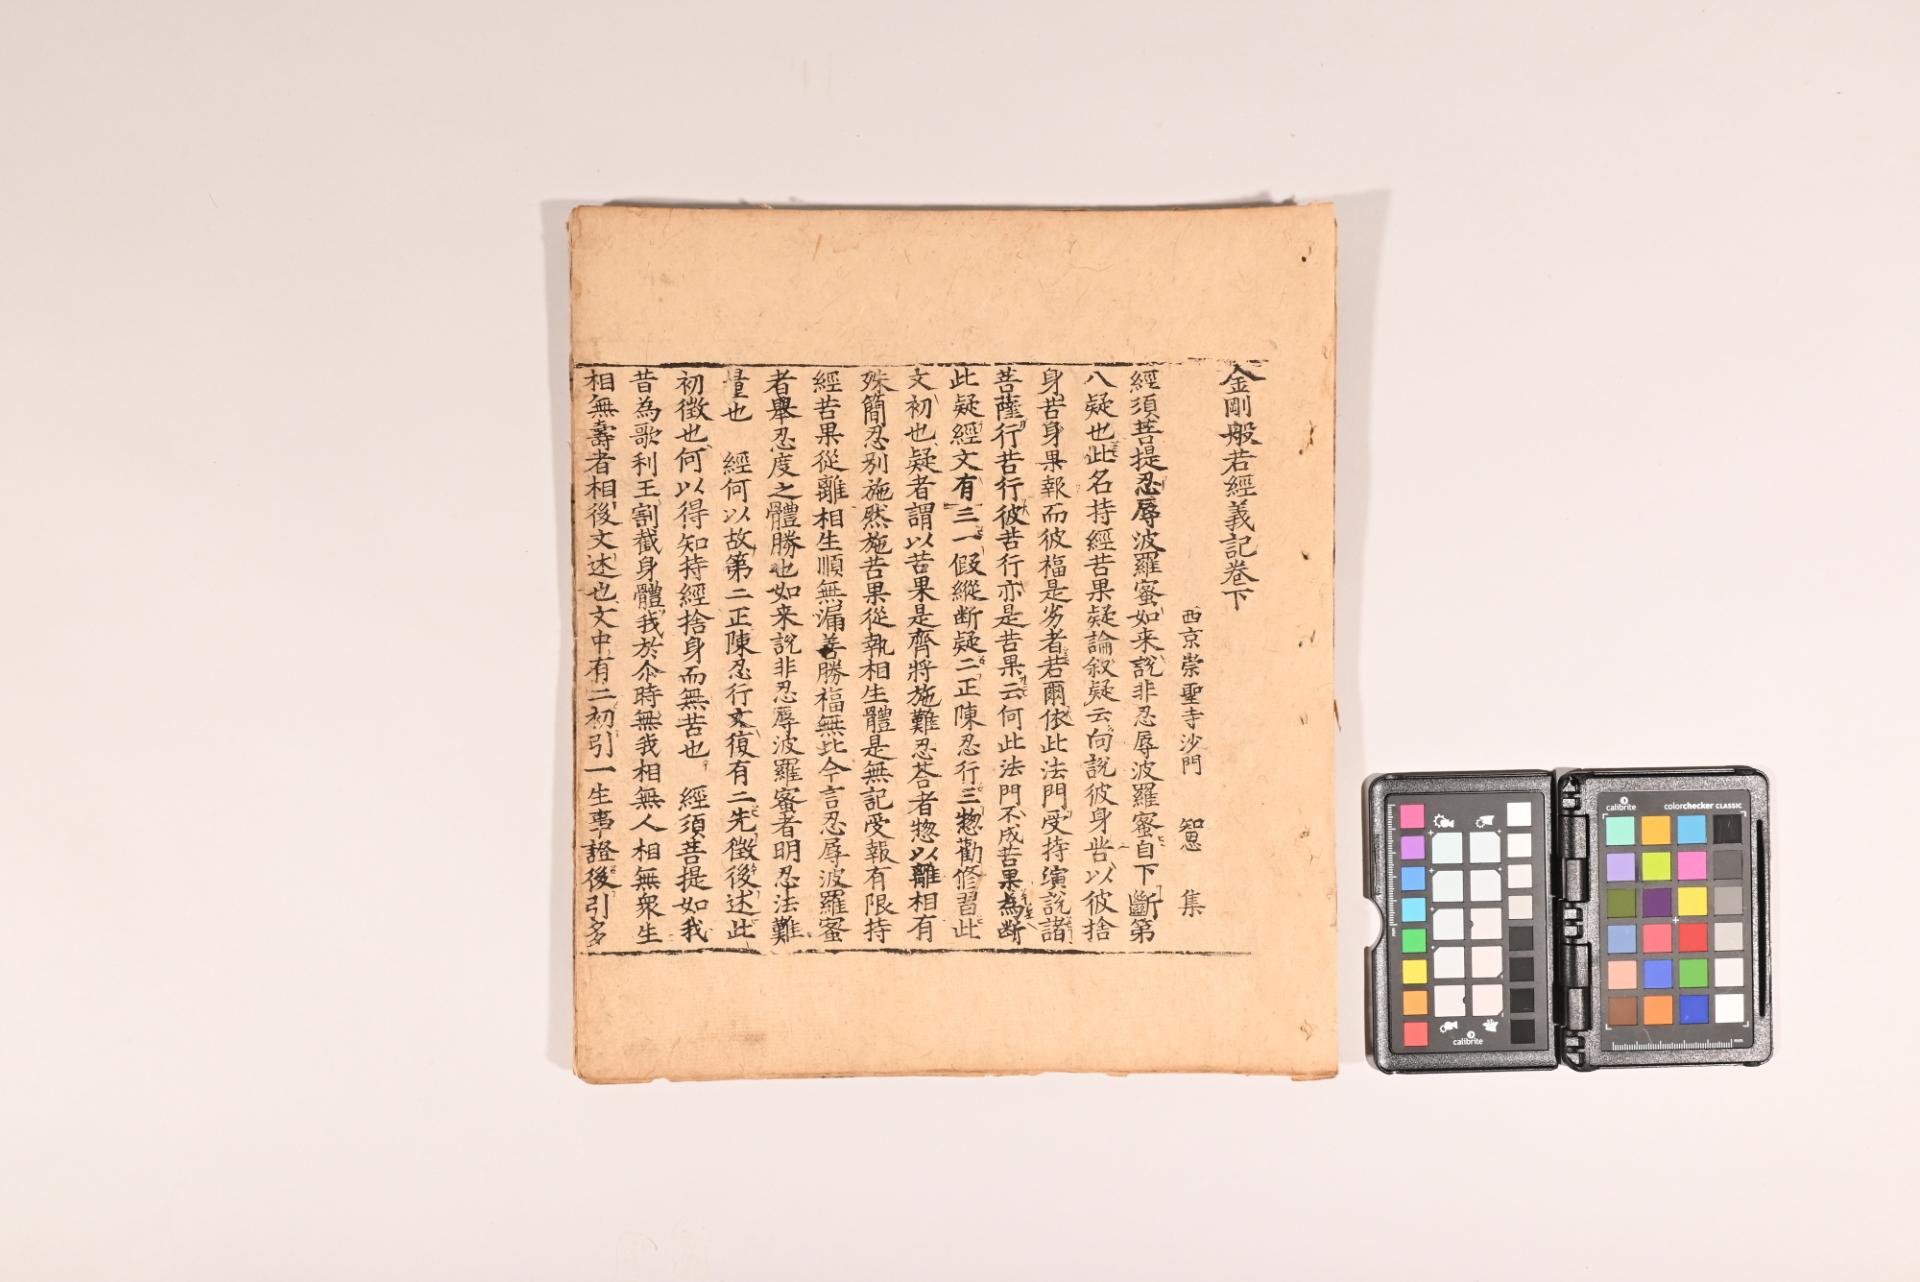 金剛般若經義記卷下
西京崇聖寺沙門 智思 集
經須菩提忍辱波羅蜜如来說非忍辱波羅蜜自下斷第
八疑也此名持經苦果疑論叙疑云向說彼身苦以彼捨
身苦身果報而彼福是劣者若爾依此法門受持演說諸
菩薩行苦行彼苦行亦是苦果云何此法門不成苦果為斷
此疑經文有三一假縱断疑二正陳忍行三惣勸修習此
文初也疑者謂以苦果是齊將施難忍荅者惣以離相有
殊簡忍别施然施苦果從執相生體是無記受報有限持
經苦果從離相生順無漏善勝福無比今言忍辱波羅蜜
者舉忍度之體勝也如来說非忍辱波羅蜜者明忍法難
量也 經何以故第二正陳忍行文復有二先徵後述此
初徵也何以得知持經捨身而無苦也 經須菩提如我
昔為歌利王割截身體我於尒時無我相無人相無衆生
相無壽者相後文述也文中有二初引一生事證後引多
calibrite
calibrite
colorchecker CLASSIC
mm